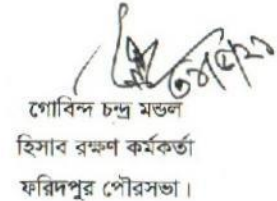 গোবিন্দ চন্দ্র মন্ডল
হিসাব রক্ষণ কর্মকর্তা
ফরিদপুর পৌরসভা।